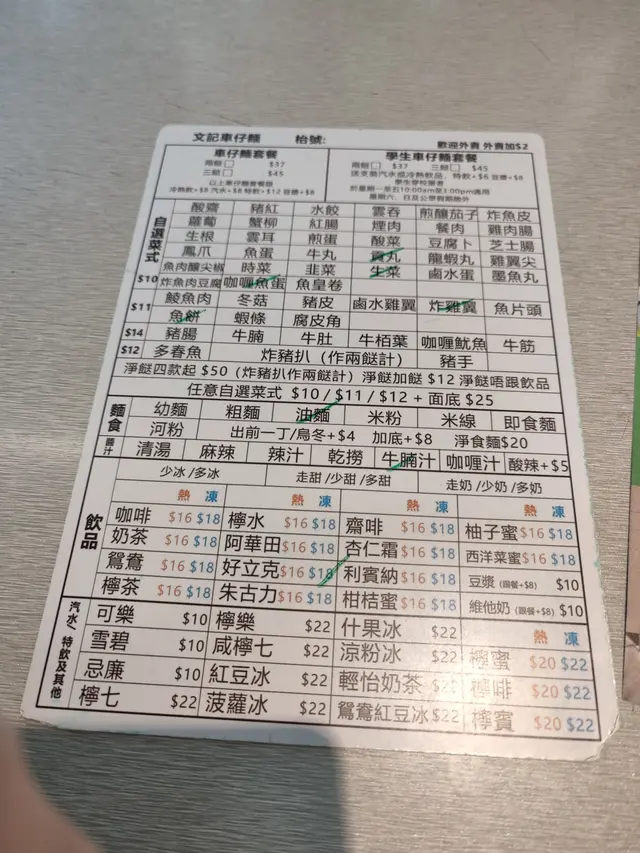 文記車仔麵 枱號: 歡迎外賣 外賣加$2
車仔麵套餐 學生車仔麵套餐
兩餸 $37 三餸 $45
以上車仔麵套餐跟
冷熱飲+$8 汽水+$8 特飲+$12 豆漿+$8
兩餸 $37 三餸 $45
送支裝汽水或冷熱飲品, 特飲+$6 豆漿+$8
學生穿校服者
於星期一至五10:00am至1:00pm適用
星期六、日及公眾假期除外
自選菜式
$10
酸齋 豬紅 水餃 雲吞 煎釀茄子 炸魚皮
蘿蔔 蟹柳 紅腸 煙肉 餐肉 雞肉腸
生根 雲耳 煎蛋 酸菜 豆腐卜 芝士腸
鳳爪 魚蛋 牛丸 貢丸 龍蝦丸 雞翼尖
魚肉釀尖椒 時菜 韭菜 生菜 鹵水蛋 墨魚丸
炸魚肉豆腐 咖喱魚蛋 魚皇卷
$11 鯪魚肉 冬菇 豬皮 鹵水雞翼 炸雞翼 魚片頭
魚餅 蝦條 腐皮角
$14 豬腸 牛腩 牛肚 牛栢葉 咖喱魷魚 牛筋
$12 多春魚 炸豬扒 (作兩餸計) 豬手
淨餸四款起 $50 (炸豬扒作兩餸計) 淨餸加餸 $12 淨餸唔跟飲品
任意自選菜式 $10 / $11 / $12 + 面底 $25
麵食 幼麵 粗麵 油麵 米粉 米線 即食麵
河粉 出前一丁/烏冬+$4 加底+$8 淨食麵$20
醬汁 清湯 麻辣 辣汁 乾撈 牛腩汁 咖喱汁 酸辣+$5
飲品
少冰 /多冰 走甜 /少甜 /多甜 走奶 /少奶 /多奶
熱 凍 熱 凍 熱 凍 熱 凍
咖啡 $16 $18 檸水 $16 $18 齋啡 $16 $18 柚子蜜 $16 $18
奶茶 $16 $18 阿華田 $16 $18 杏仁霜 $16 $18 西洋菜蜜 $16 $18
鴛鴦 $16 $18 好立克 $16 $18 利賓納 $16 $18 豆漿 (跟餐+$8) $10
檸茶 $16 $18 朱古力 $16 $18 柑桔蜜 $16 $18 維他奶 (跟餐+$8) $10
汽水、特飲及其他
可樂 $10 檸樂 $22 什果冰 $22 熱 凍
雪碧 $10 咸檸七 $22 涼粉冰 $22 檸蜜 $20 $22
忌廉 $10 紅豆冰 $22 輕怡奶茶 檸啡 $20 $22
檸七 $22 菠蘿冰 $22 鴛鴦紅豆冰 $22 檸賓 $20 $22